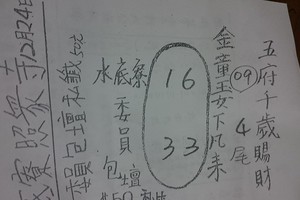 五府千歲賜財
09 4尾
金童玉女下凡来
16 33
水底寮委員包壇
委員包壇私鐵
寮照眾寺12月24日